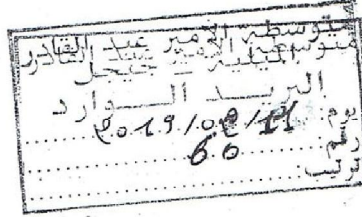 متوسطة الأمير عبد القادر
الميلية - جيجل
البريد الوارد
يوم: 2019/02/11
رقم: 60